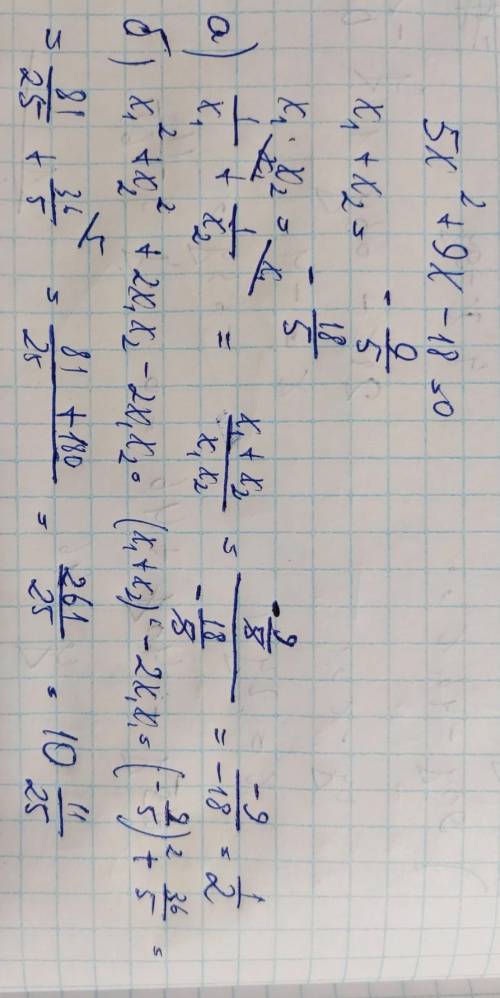 5x² + 9x - 18 = 0
x₁ + x₂ = - 9/5
x₁ · x₂ = - 18/5
а) 1/x₁ + 1/x₂ = (x₁ + x₂)/(x₁x₂) = (-9/5)/(-18/5) = -9/-18 = 1/2
б) x₁² + x₂² + 2x₁x₂ - 2x₁x₂ = (x₁ + x₂)² - 2x₁x₂ = (-9/5)² + 36/5 =
= 81/25 + 36/5 /5 = (81 + 180)/25 = 261/25 = 10 11/25